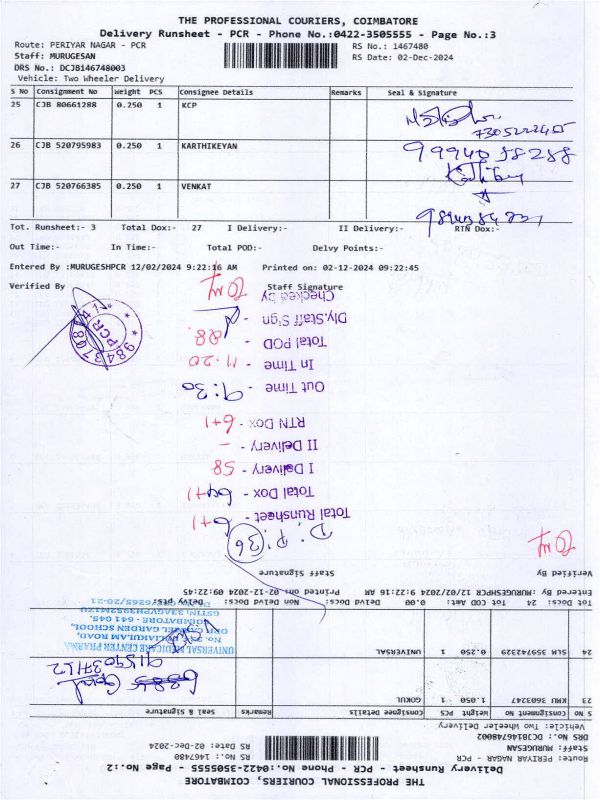 THE PROFESSIONAL COURIERS, COIMBATORE
Delivery Runsheet - PCR - Phone No.:0422-3505555 - Page No.:3
Route: PERIYAR NAGAR - PCR
RS No.: 1467480
Staff: MURUGESAN
RS Date: 02-Dec-2024
DRS No.: DCJB146748003
Vehicle: Two Wheeler Delivery
S No Consignment No Weight PCS Consignee Details Remarks Seal & Signature
25 CJB 80661288 0.250 1 KCP
26 CJB 520795983 0.250 1 KARTHIKEYAN
9994058288
27 CJB 520766385 0.250 1 VENKAT
Tot. Runsheet:- 3 Total Dox:- 27 I Delivery:- II Delivery:- RTN Dox:-
Out Time:- In Time:- Total POD:- Delvy Points:-
Entered By :MURUGESHPCR 12/02/2024 9:22:16 AM Printed on: 02-12-2024 09:22:45
Verified By Staff Signature
PCR
THE PROFESSIONAL COURIERS, COIMBATORE
Delivery Runsheet - PCR - Phone No.:0422-3505555 - Page No.:2
Route: PERIYAR NAGAR - PCR
RS No.: 1467480
Staff: MURUGESAN
RS Date: 02-Dec-2024
DRS No.: DCJB146748002
Vehicle: Two Wheeler Delivery
S No Consignment No Weight PCS Consignee Details Remarks Seal & Signature
23 KMU 3603247 1.050 1 GOKUL
24 SLM 359974329 0.250 1 UNIVERSAL
UNIVERSAL MEDICARE CENTER PHARMA
COIMBATORE - 641 045.
Tot Docs: 24 Tot COD Amt: 0.00 Delvd Docs: Non Delvd Docs: Delvy pts:
Entered By :MURUGESHPCR 12/02/2024 9:22:16 AM Printed on: 02-12-2024 09:22:45
Verified By Staff Signature
D.P: 36
Total Runsheet - 6+1
Total Dox - 64+1
I Delivery - 58
II Delivery -
RTN Dox - 6+1
Out Time - 9:30
In Time - 11.20
Total POD - 28.
Dly.Staff Sign -
Checked by